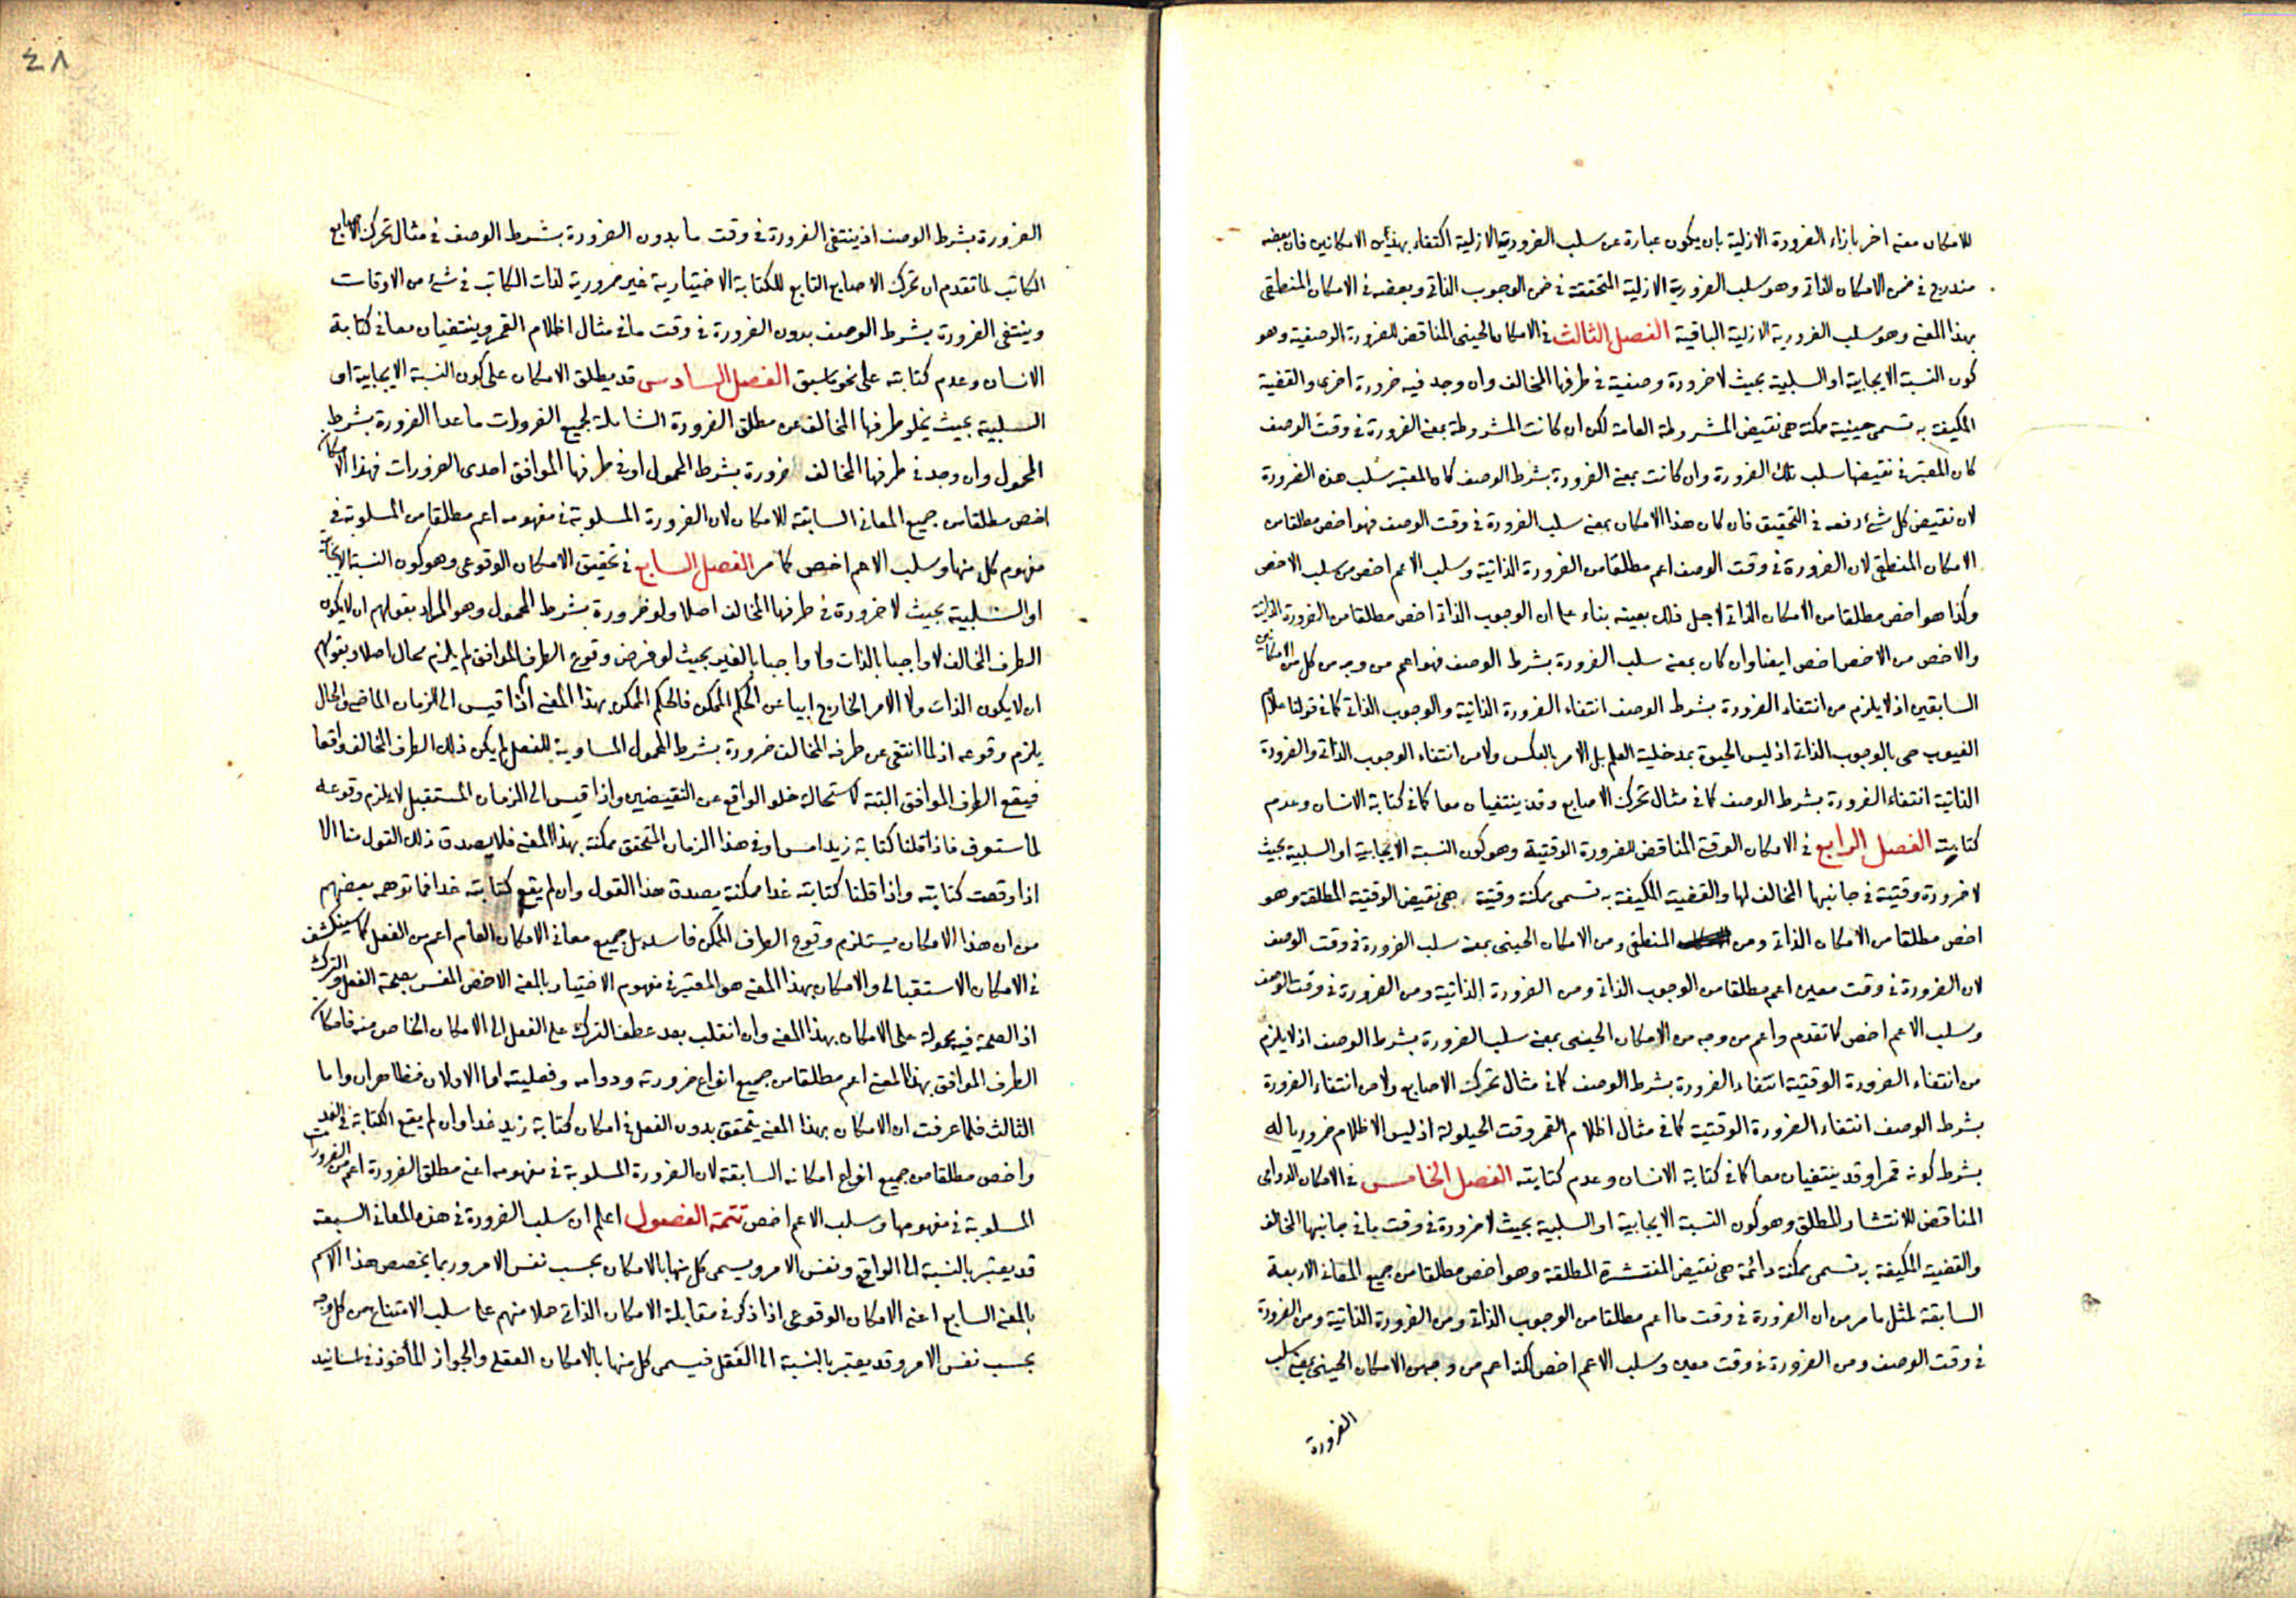 للامكان معنى اخر بازاء الضرورة الازلية بان يكون عبارة عن سلب الضرورية الازلية اكتفاء بهذين الامكانين فان بعضه
مندرج فى ضمن الامكان الذاتى وهو سلب الضرورية الازلية المتحققة فى ضمن الوجوب الذاتى وبعضه فى الامكان المنطقى
بهذا المعنى وهو سلب الضرورية الازلية الباقية الفصل الثالث فى الامكان الحينى المناقض للضرورة الوصفية وهو
كون النسبة الايجابية او السلبية بحيث لا ضرورة وصفية فى طرفها المخالف وان وجد فيه ضرورة اخرى والقضية
المكيفة به تسمى حينية ممكنة هى نقيض المشروطة العامة لكن ان كانت المشروطة بمعنى الضرورة فى وقت الوصف
كان المعتبر فى نقيضها سلب تلك الضرورة وان كانت بمعنى الضرورة بشرط الوصف كان المعتبر سلب هذه الضرورة
لان نقيض كل شئ رفعه فى التحقيق فان كان هذا الامكان بمعنى سلب الضرورة فى وقت الوصف فهو اخص مطلقا من
الامكان المنطقى لان الضرورة فى وقت الوصف اعم مطلقا من الضرورة الذاتية وسلب الاعم اخص من سلب الاخص
وكذا هو اخص مطلقا من الامكان الذاتى لاجل ذلك بعينه بناء على ان الوجوب الذاتى اخص مطلقا من الضرورة الذاتية
والاخص من الاخص اخص ايضا وان كان بمعنى سلب الضرورة بشرط الوصف فهو اعم من وجه من كل من الامكانين
السابقين اذ لا يلزم من انتفاء الضرورة بشرط الوصف انتفاء الضرورة الذاتية والوجوب الذاتى كما فى قولنا علام
الغيوب حى بالوجوب الذاتى اذ ليس الحيوة بمدخلية العلم بل الامر بالعكس ولا من انتفاء الوجوب الذاتى والضرورة
الذاتية انتفاء الضرورة بشرط الوصف كما فى مثال تحرك الاصابع وقد ينتفيان معا كما فى كتابة الانسان وعدم
كتابته الفصل الرابع فى الامكان الوقتى المناقض للضرورة الوقتية وهو كون النسبة الايجابية او السلبية بحيث
لا ضرورة وقتية فى جانبها المخالف لها والقضية المكيفة به تسمى ممكنة وقتية هى نقيض الوقتية المطلقة وهو
اخص مطلقا من الامكان الذاتى ومن المنطقى ومن الامكان الحينى بمعنى سلب الضرورة فى وقت الوصف
لان الضرورة فى وقت معين اعم مطلقا من الوجوب الذاتى ومن الضرورة الذاتية ومن الضرورة فى وقت الوصف
وسلب الاعم اخص كما تقدم واعم من وجه من الامكان الحينى بمعنى سلب الضرورة بشرط الوصف اذ لا يلزم
من انتفاء الضرورة الوقتية انتفاء الضرورة بشرط الوصف كما فى مثال تحرك الاصابع ولا من انتفاء الضرورة
بشرط الوصف انتفاء الضرورة الوقتية كما فى مثال اظلام القمر وقت الحيلولة اذ ليس الاظلام ضروريا له
بشرط كونه قمرا وقد ينتفيان معا كما فى كتابة الانسان وعدم كتابته الفصل الخامس فى الامكان الدوامى
المناقض للانتشار المطلق وهو كون النسبة الايجابية او السلبية بحيث لا ضرورة فى وقت ما فى جانبها المخالف
والقضية المكيفة به تسمى ممكنة دائمة هى نقيض المنتشرة المطلقة وهو اخص مطلقا من جميع المعانى الاربعة
السابقة لمثل ما مر من ان الضرورة فى وقت ما اعم مطلقا من الوجوب الذاتى ومن الضرورة الذاتية ومن الضرورة
فى وقت الوصف ومن الضرورة فى وقت معين وسلب الاعم اخص لكنه اعم من وجه من الامكان الحينى بمعنى سلب
الضرورة
٤٨
الضرورة بشرط الوصف اذ ينتفى الضرورة فى وقت ما بدون الضرورة بشرط الوصف فى مثال تحرك الاصابع
الكاتب لما تقدم ان تحرك الاصابع التابع للكتابة الاختيارية غير ضرورية لذات الكاتب فى شئ من الاوقات
وينتفى الضرورة بشرط الوصف بدون الضرورة فى وقت ما فى مثال اظلام القمر وينتفيان معا فى كتابة
الانسان وعدم كتابته على نحو ما سبق الفصل السادس قد يطلق الامكان على كون النسبة الايجابية او
السلبية بحيث يخلو طرفها المخالف عن مطلق الضرورة الشاملة لجميع الضرورات ما عدا الضرورة بشرط
المحمول وان وجد فى طرفها المخالف ضرورة بشرط المحمول او فى طرفها الموافق احدى الضرورات فهذا الامكان
اخص مطلقا من جميع المعانى السابقة للامكان لان الضرورة المسلوبة فى مفهومه اعم مطلقا من المسلوبة فى
مفهوم كل منها وسلب الاعم اخص كما مر الفصل السابع فى تحقيق الامكان الوقوعى وهو كون النسبة الايجابية
او السلبية بحيث لا ضرورة فى طرفها المخالف اصلا ولو ضرورة بشرط المحمول وهو المراد بقولهم ان لا يكون
الطرف المخالف لا واجبا بالذات ولا واجبا بالغير بحيث لو فرض وقوع الطرف الموافق لم يلزم محال اصلا وبقولهم
ان لا يكون الذات ولا الامر الخارج ابيا عن الحكم الممكن فالحكم الممكن بهذا المعنى اذا قيس الى الزمان الماضى والحال
يلزم وقوعه اذ لما انتفى عن طرفه المخالف ضرورة بشرط المحمول المساوية للفعل لم يكن ذلك الطرف المخالف واقعا
فيقع الطرف الموافق البتة لاستحالة خلو الواقع عن النقيضين واذا قيس الى الزمان المستقبل لا يلزم وقوعه
لما ستعرف فاذا قلنا كتابة زيد امس او فى هذا الزمان المتحقق ممكنة بهذا المعنى فلا يصدق ذلك القول منا الا
اذا وقعت كتابته واذا قلنا كتابته غدا ممكنة يصدق هذا القول وان لم يقع كتابته غدا فما توهمه بعضهم
من ان هذا الامكان يستلزم وقوع الطرف الممكن فاسد بل جميع معانى الامكان العام اعم من الفعل كما سينكشف
فى الامكان الاستقبالى والامكان بهذا المعنى هو المعتبر فى مفهوم الاختيار بالمعنى الاخص المفسر بصحة الفعل والترك
اذ الصحة فيه محمولة على الامكان بهذا المعنى وان انقلب بعد عطف الترك على الفعل الى الامكان الخاص منه فامكان
الطرف الموافق بهذا المعنى اعم مطلقا من جميع انواع ضرورته ودوامه وفعليته اما الاولان فظاهران واما
الثالث فلما عرفت ان الامكان بهذا المعنى يتحقق بدون الفعل فى امكان كتابة زيد غدا وان لم يقع الكتابة فى الغد
واخص مطلقا من جميع انواع امكانه السابقة لان الضرورة المسلوبة فى مفهومه اعنى مطلق الضرورة اعم من الضرورات
المسلوبة فى مفهومها وسلب الاعم اخص تتمة الفصول اعلم ان سلب الضرورة فى هذه المعانى السبعة
قد يعتبر بالنسبة الى الواقع ونفس الامر ويسمى كل منها بالامكان بحسب نفس الامر وربما يخصص هذا الاسم
بالمعنى السابع اعنى الامكان الوقوعى اذا ذكر فى مقابلة الامكان الذاتى حملا منهم على سلب الامتناع من كل وجه
بحسب نفس الامر وقد يعتبر بالنسبة الى العقل فيسمى كل منها بالامكان العقلى والجواز المأخوذ فى